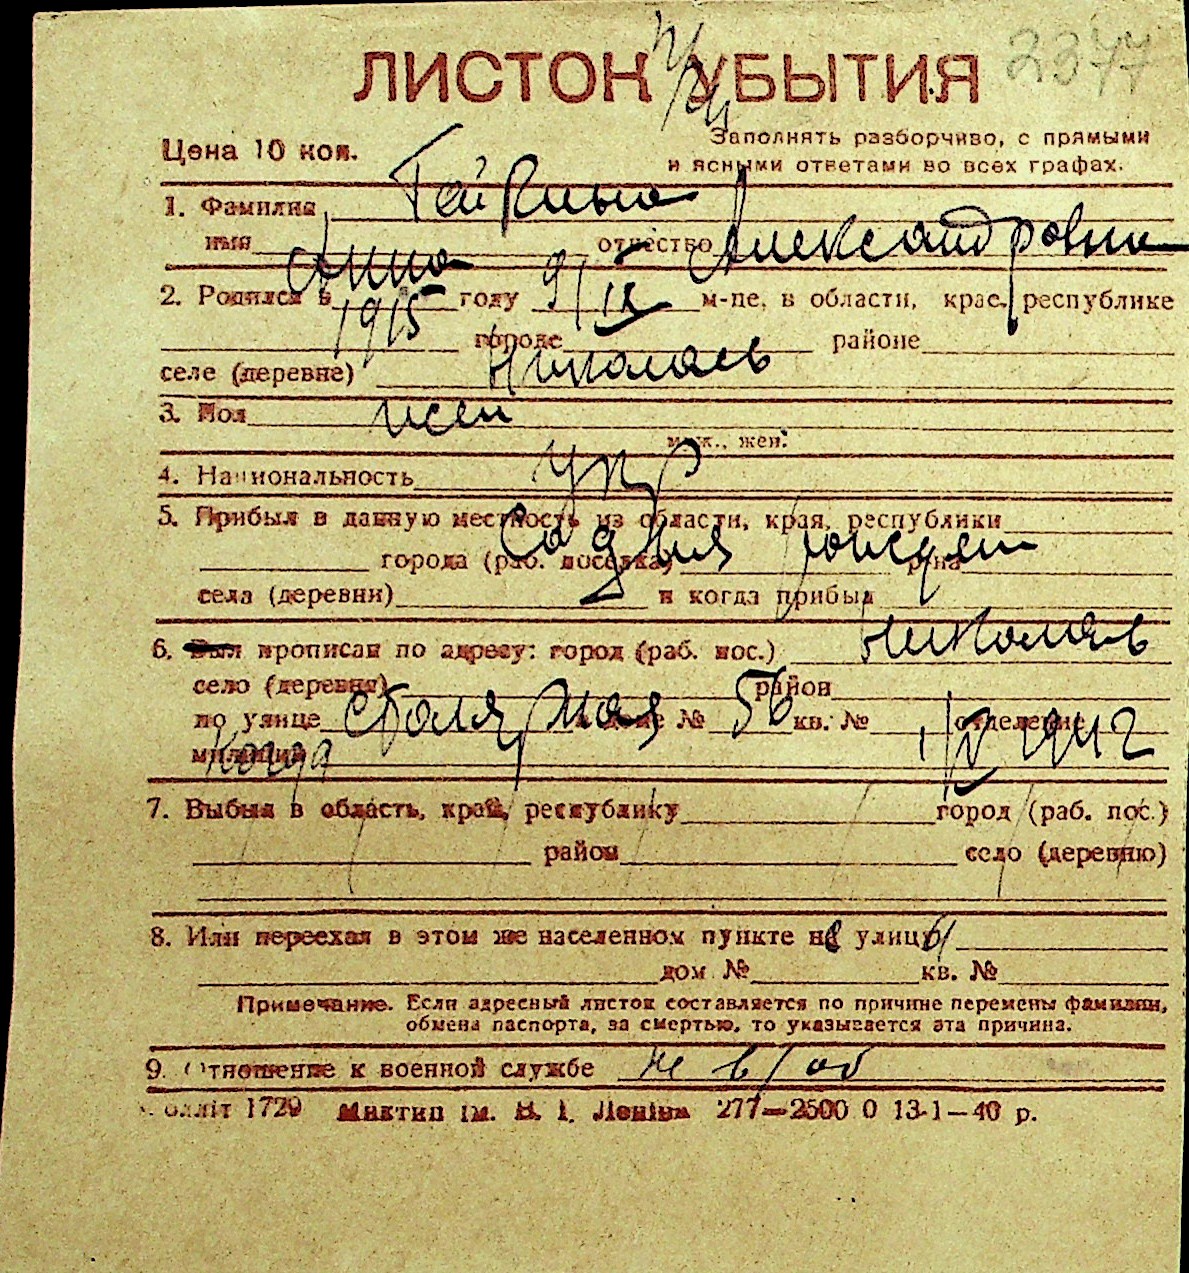 2377
ЛИСТОК УБЫТИЯ
Цена 10 коп.
Заполнять разборчиво, с прямыми
и ясными ответами во всех графах.
1. Фамилия
имя Анна отчество Александровна
2. Родился в 1915 году 9/IX м-це, в области, крае, республике
городе районе
селе (деревне) Николаев
3. Пол жен
муж., жен.
4. Национальность укр
5. Прибыл в данную местность из области, края, республики
города (раб. поселка) р-на
села (деревни) и когда прибыл
С 9 дня рожден
6. Был прописан по адресу: город (раб. пос.) Николаев
село (деревня) район
по улице Столярная в доме № 56 кв. № отделение
милиции Когда 1/IV 1942
7. Выбыл в область, край, республику город (раб. пос.)
район село (деревню)
8. Или переехал в этом же населенном пункте на улицу
дом № кв. №
Примечание. Если адресный листок составляется по причине перемены фамилии,
обмена паспорта, за смертью, то указывается эта причина.
9. Отношение к военной службе не в/об
1729 Миктип ім. В. І. Леніна 277—2500 0 13-1—40 р.